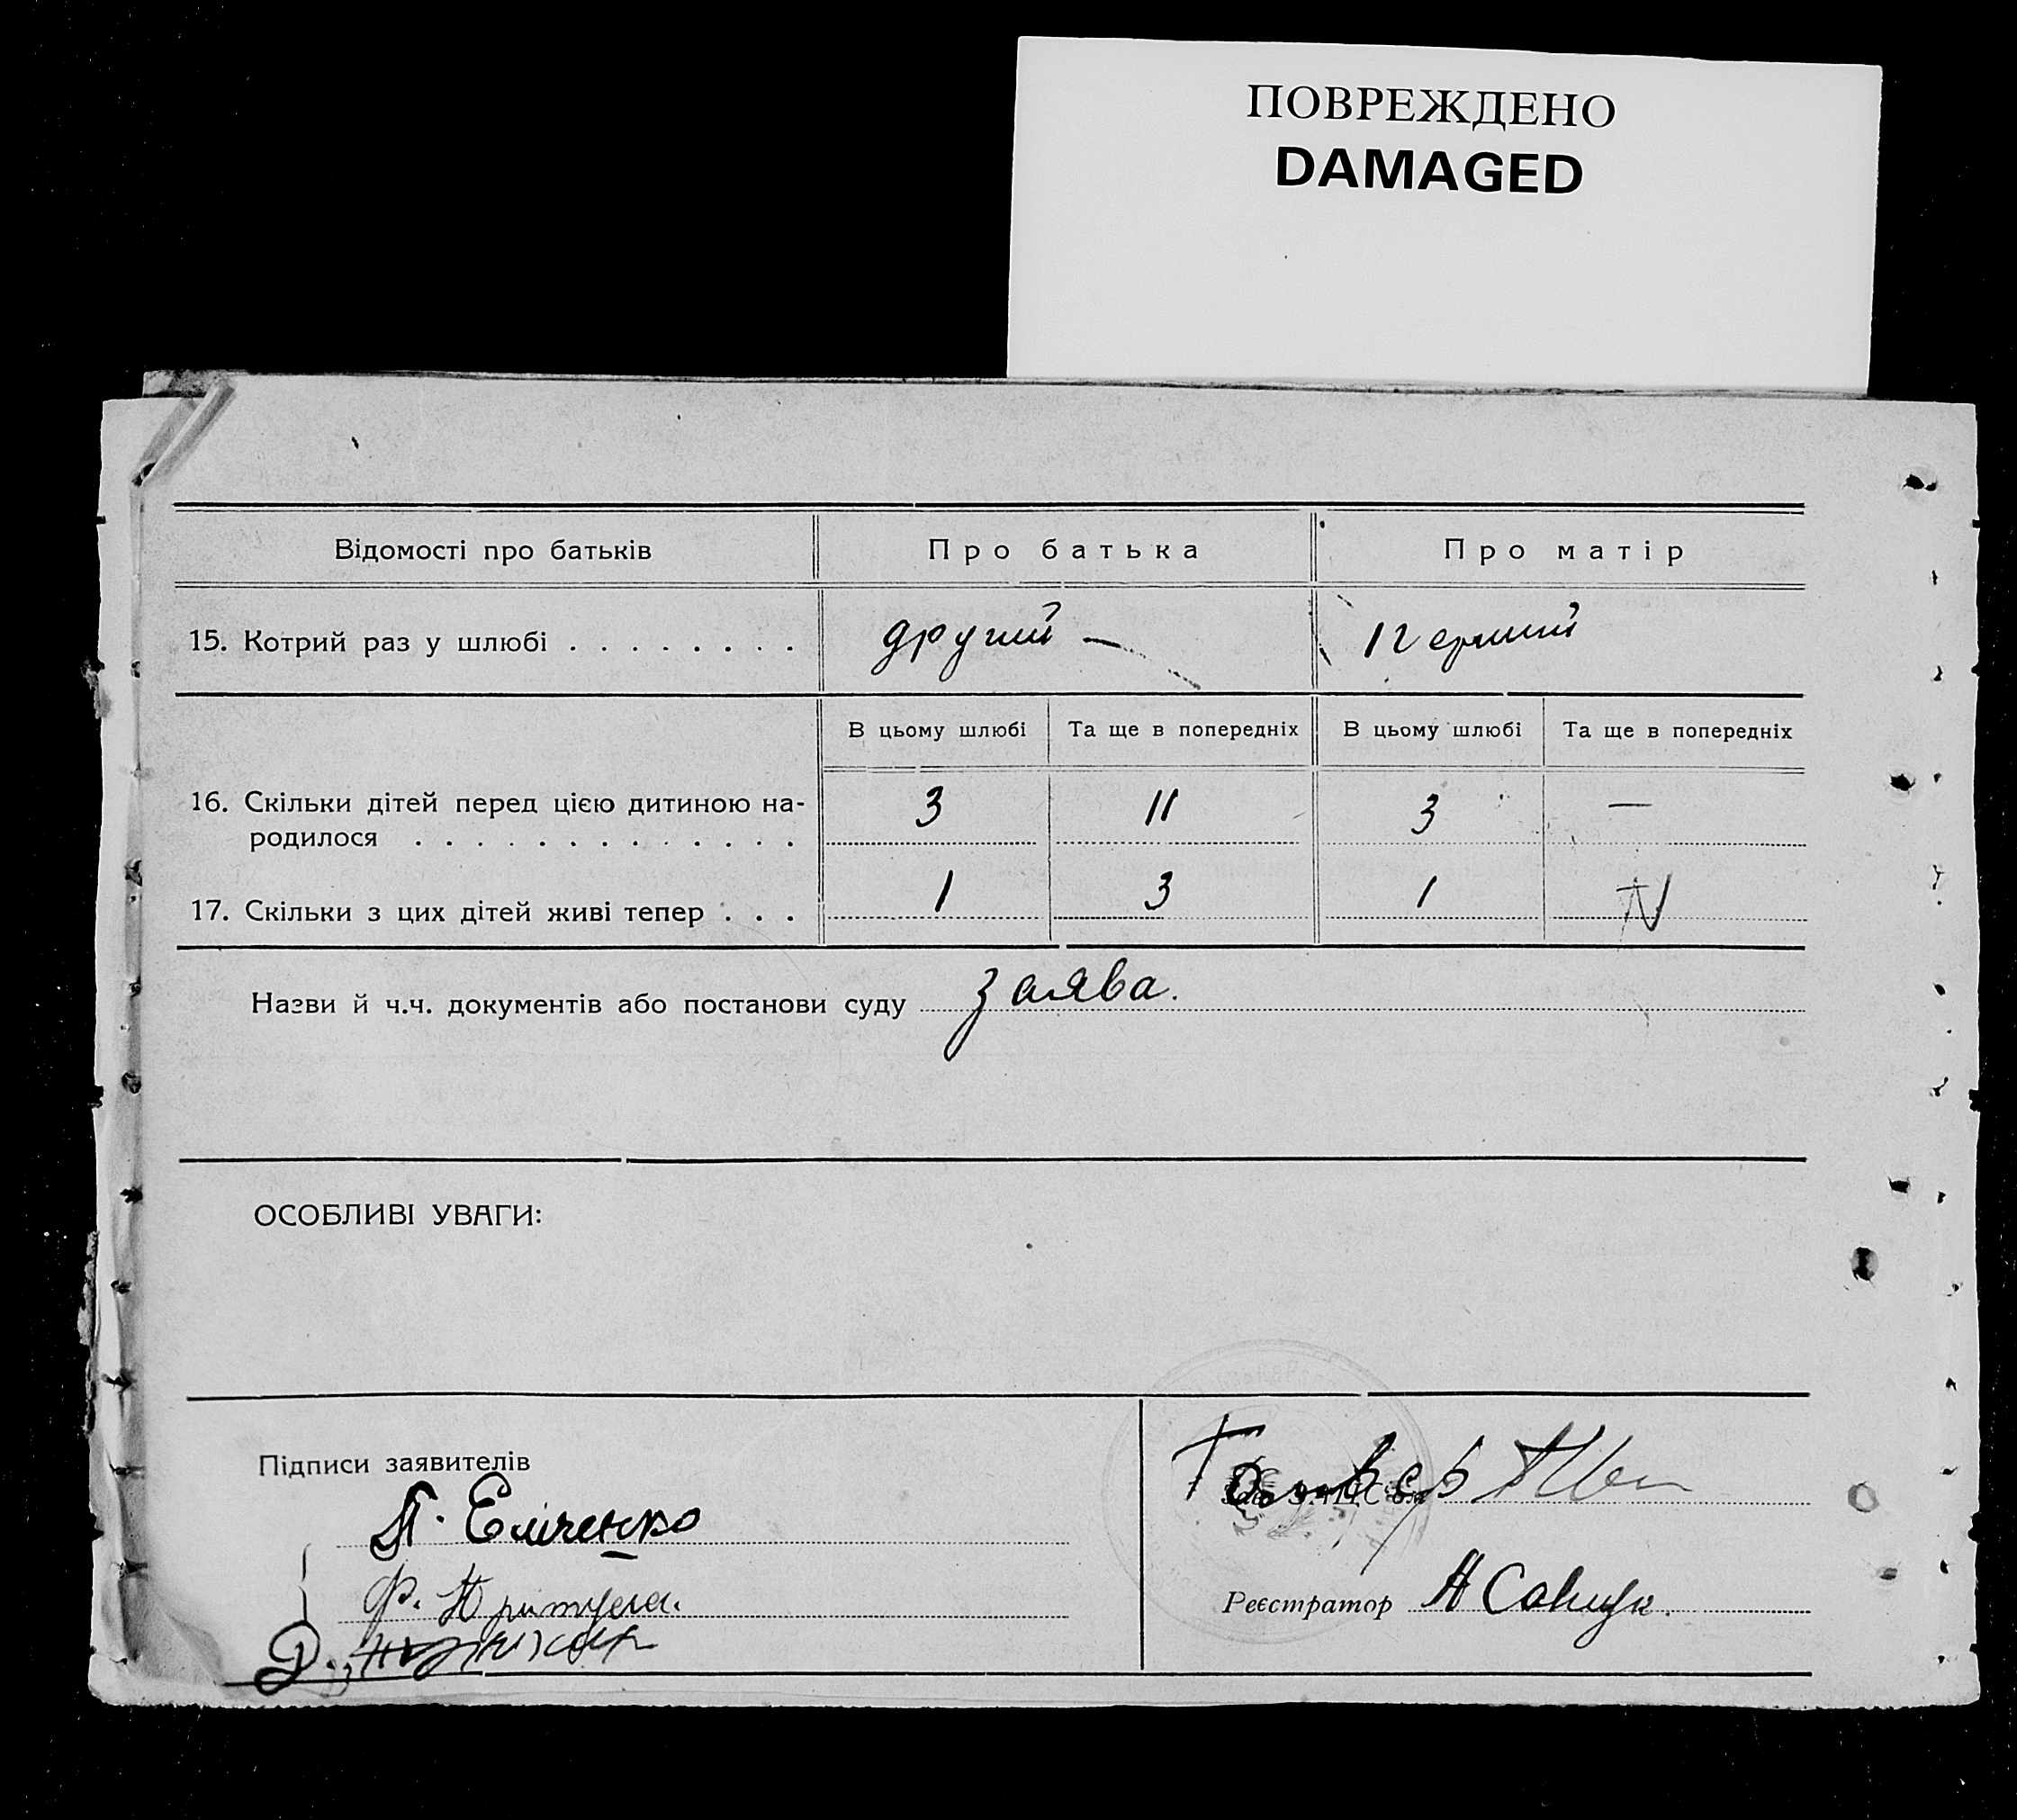 ПОВРЕЖДЕНО
DAMAGED
Відомості про батьків Про батька Про матір
15. Котрий раз у шлюбі . . . . . . . . другий — перший
В цьому шлюбі Та ще в попередніх В цьому шлюбі Та ще в попередніх
16. Скільки дітей перед цією дитиною на-
родилося . . . . . . . . . . . . . 3 11 3 —
17. Скільки з цих дітей живі тепер . . . 1 3 1
Назви й ч.ч. документів або постанови суду заява.
ОСОБЛИВІ УВАГИ:
Підписи заявителів
П. Еліченко
Ф. Притула.
Д.
Реєстратор